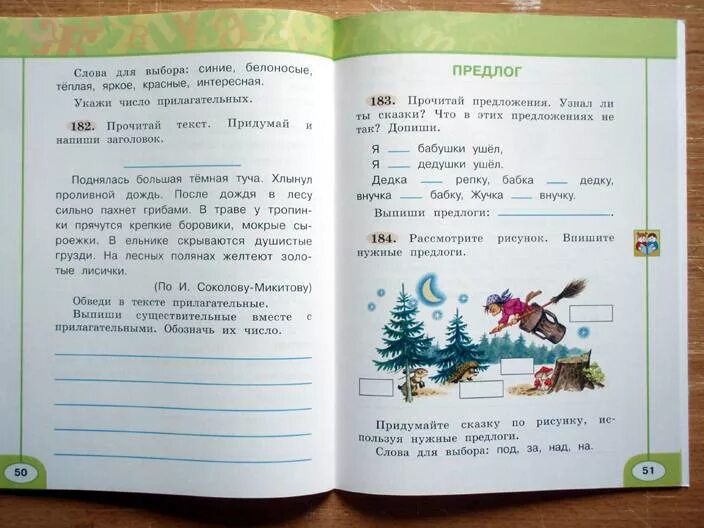 Слова для выбора: синие, белоносые,
тёплая, яркое, красные, интересная.
Укажи число прилагательных.
182. Прочитай текст. Придумай и
напиши заголовок.
Поднялась большая тёмная туча. Хлынул
проливной дождь. После дождя в лесу
сильно пахнет грибами. В траве у тропин-
ки прячутся крепкие боровики, мокрые сы-
роежки. В ельнике скрываются душистые
грузди. На лесных полянах желтеют золо-
тые лисички.
(По И. Соколову-Микитову)
Обведи в тексте прилагательные.
Выпиши существительные вместе с
прилагательными. Обозначь их число.
50
ПРЕДЛОГ
183. Прочитай предложения. Узнал ли
ты сказки? Что в этих предложениях не
так? Допиши.
Я ___ бабушки ушёл,
Я ___ дедушки ушёл.
Дедка ___ репку, бабка ___ дедку,
внучка ___ бабку, Жучка ___ внучку.
Выпиши предлоги: ___.
184. Рассмотрите рисунок. Впишите
нужные предлоги.
Придумайте сказку по рисунку, ис-
пользуя нужные предлоги.
Слова для выбора: под, за, над, на.
51